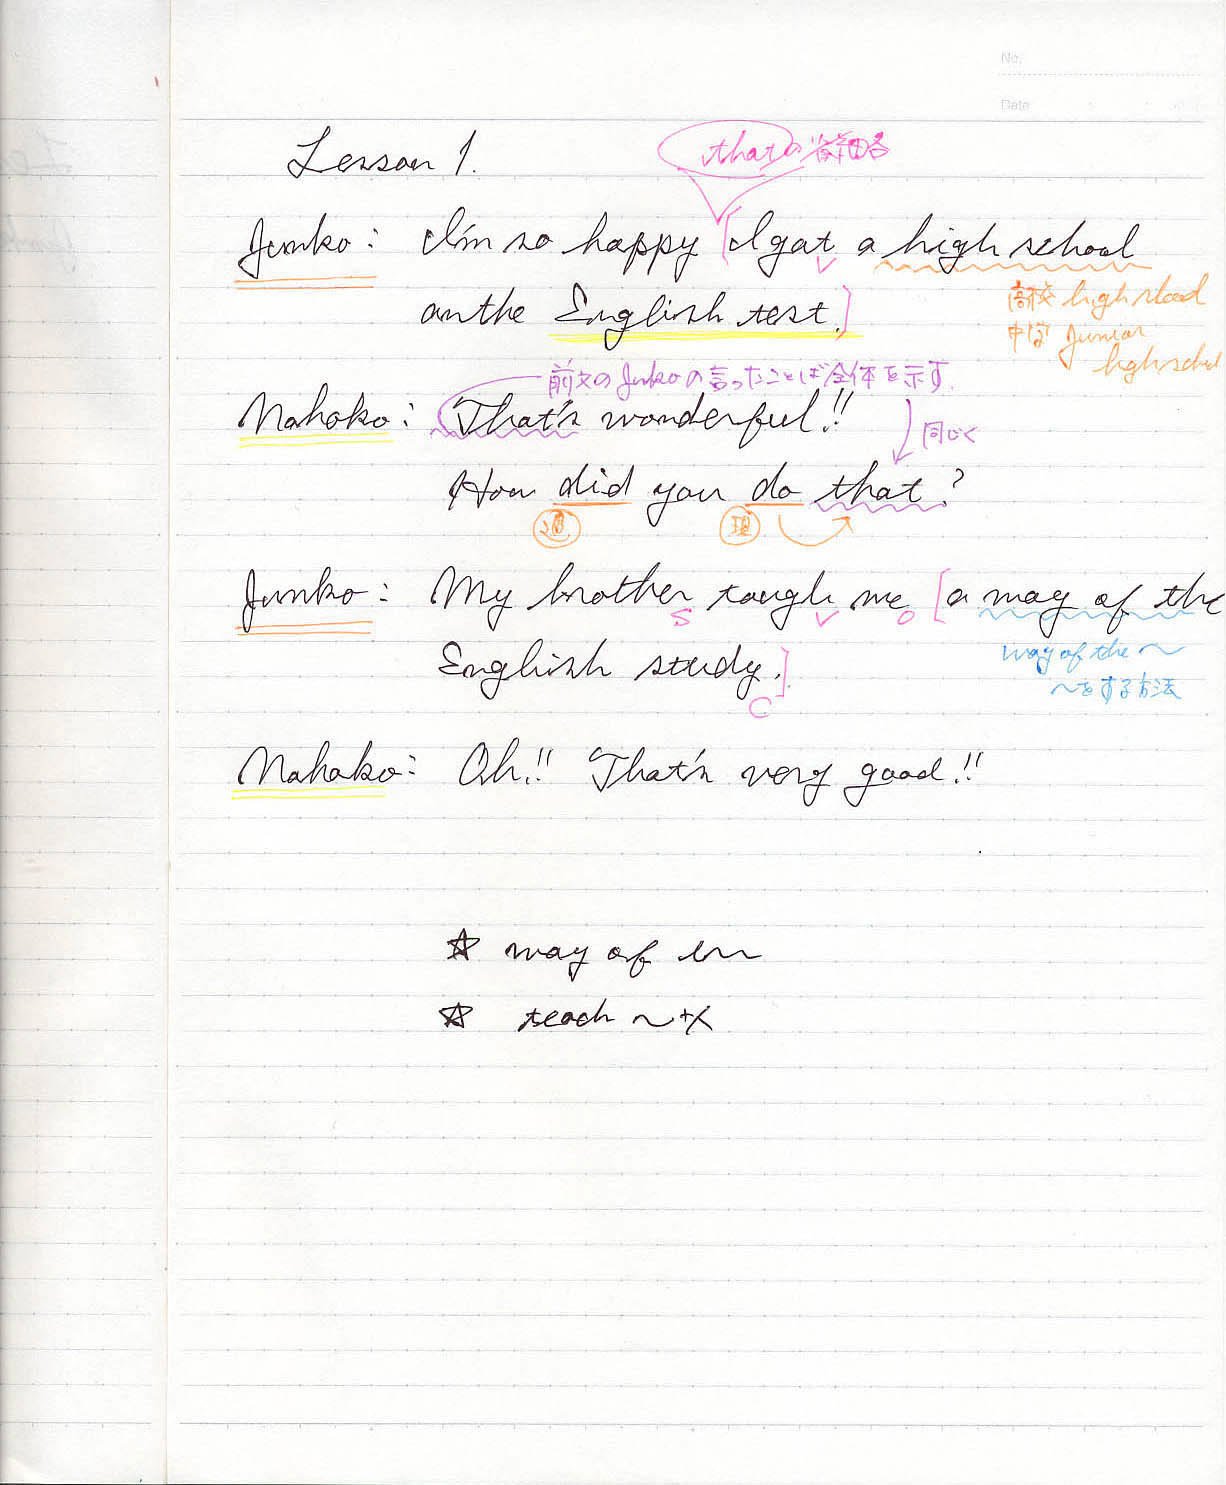 No.
Date
Lesson 1.
thatの省略
Junko: I'm so happy [I got a high school
V
on the English test.]
高校 high shool
中学 Junior
high school
前文のJunkoの言ったことば全体を示す.
Nahoko: That's wonderful!!
同じく
How did you do that?
過 現
Junko: My brother tough me [a way of the
S V O
English study.]
C
way of the ～
～をする方法
Nahoko: Oh!! That's very good!!
☆ way of
☆ teach ～+X